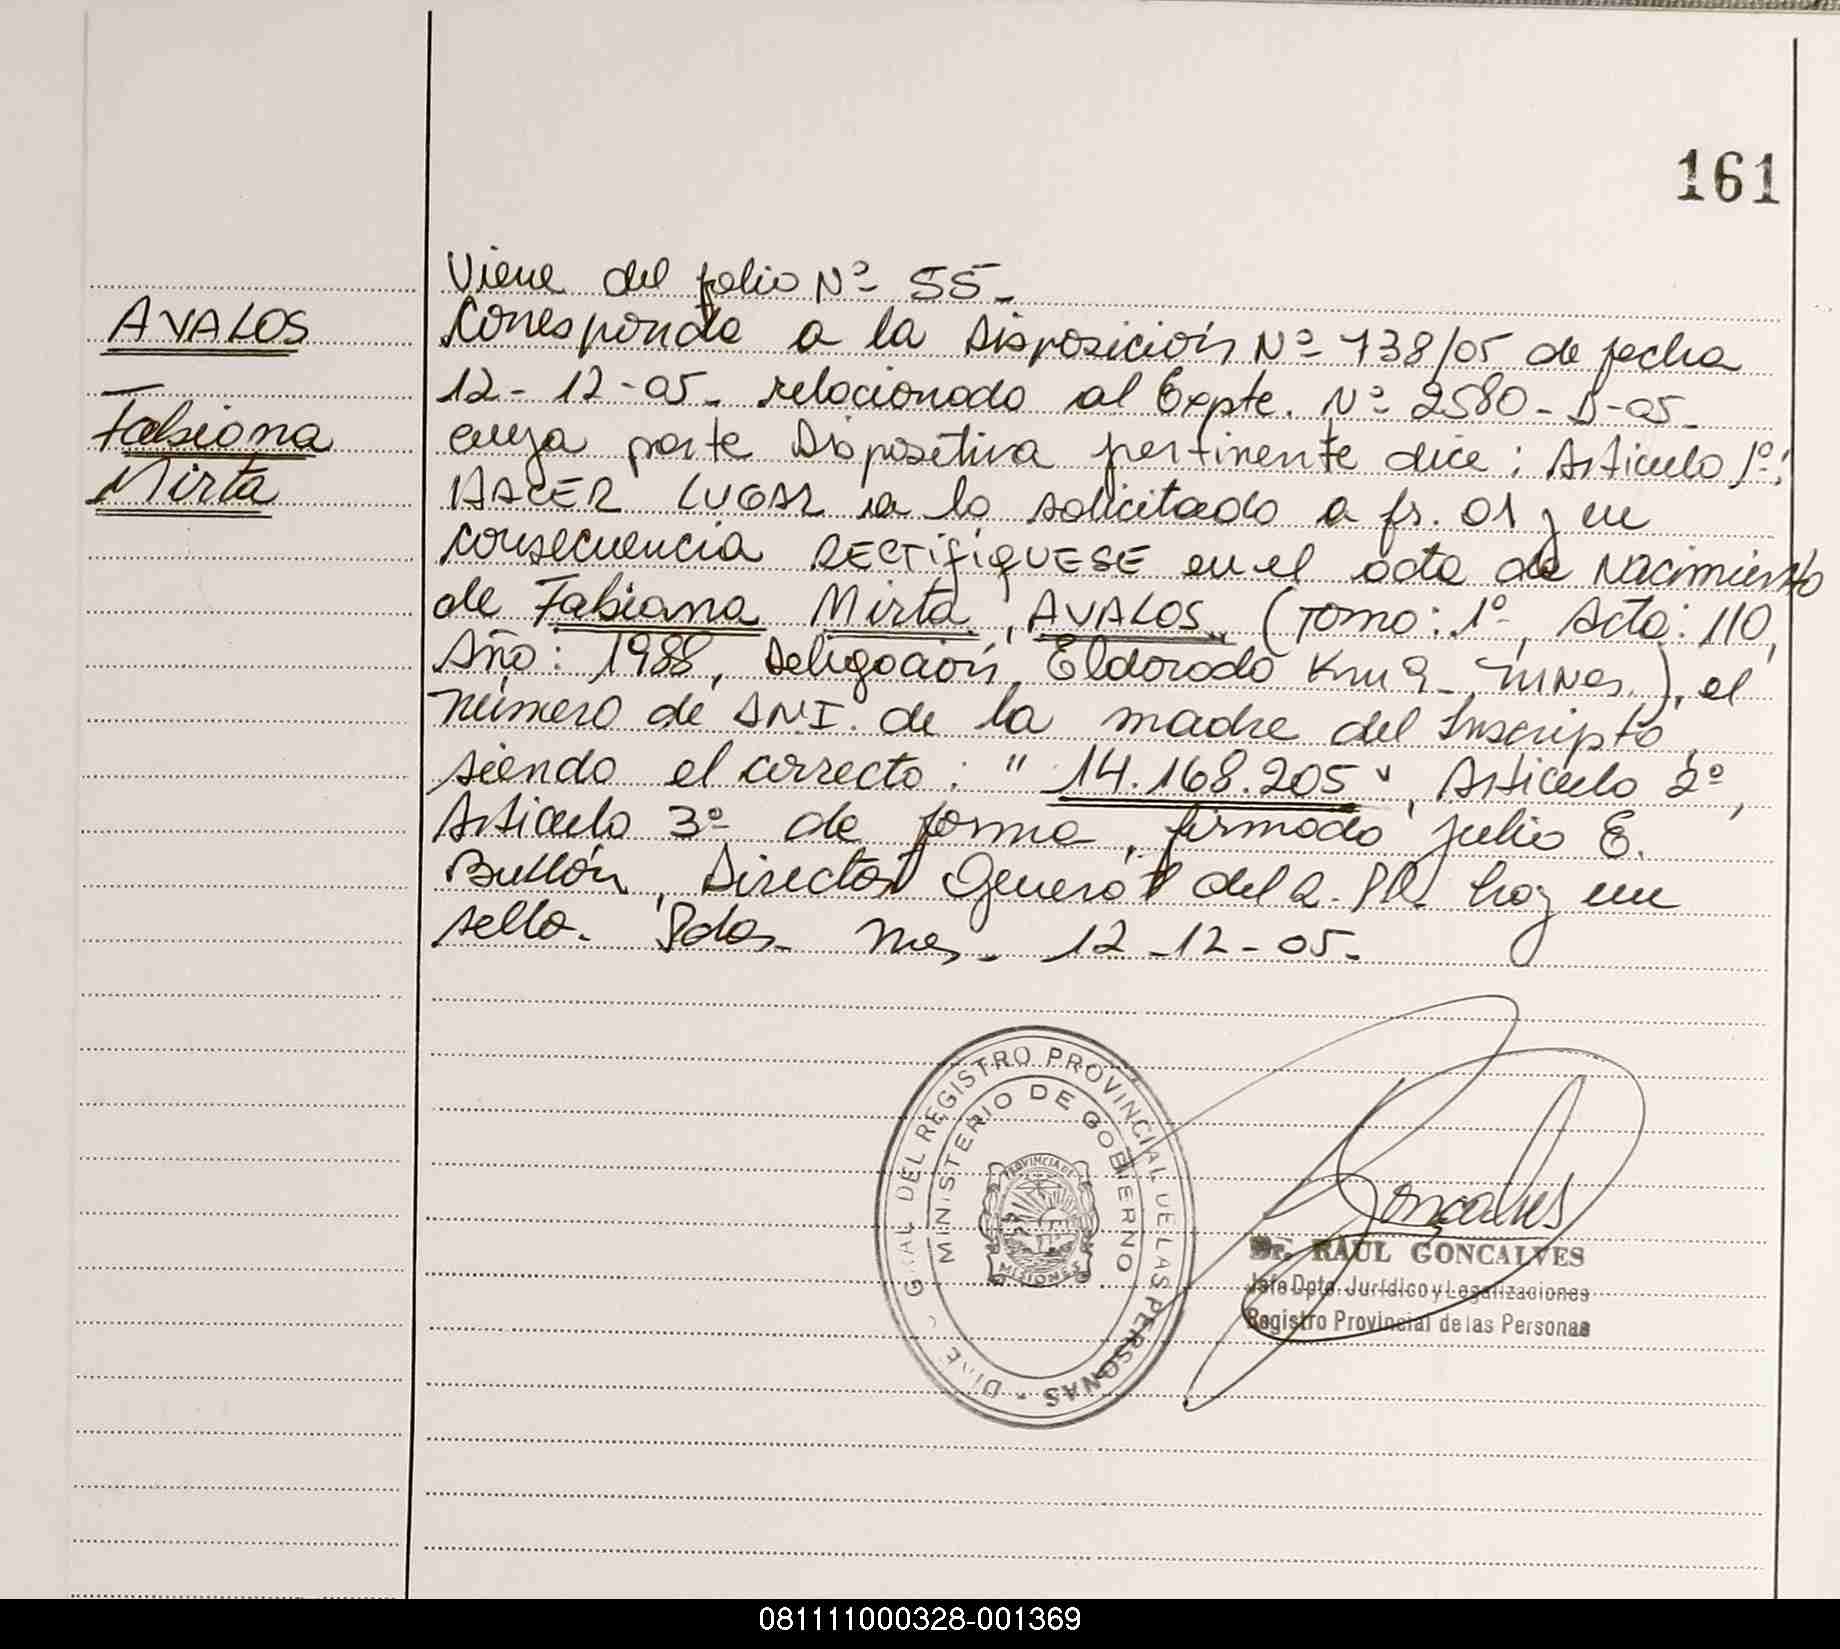 161
Viene del folio Nº 55-
AVALOS
Corresponde a la Disposición Nº 738/05 de fecha
12-12-05- relacionado al Expte. Nº 2580-D-05-
Fabiana
cuya parte Dispositiva pertinente dice: Artículo 1º:
Mirta
HACER LUGAR a lo solicitado a fs. 01 y en
consecuencia RECTIFIQUESE en el acta de Nacimiento
de Fabiana Mirta, AVALOS, (Tomo: 1º, Acta: 110,
Año: 1988, Delegación Eldorado Km 9- Mnes.), el
número de D.N.I. de la madre del Inscripto,
siendo el correcto: "14.168.205", Artículo 2º,
Artículo 3º de forma, firmado Julio E.
Director General del R.P.P. hay un
sello- Pdas- Mnes- 12-12-05-
GRAL DEL REGISTRO PROVINCIAL DE LAS PERSONAS -
MINISTERIO DE GOBIERNO
PROVINCIA DE
MISIONES
Goncalves
Dr. RAUL GONCALVES
Jefe Dpto. Jurídico y Legalizaciones
Registro Provincial de las Personas
081111000328-001369